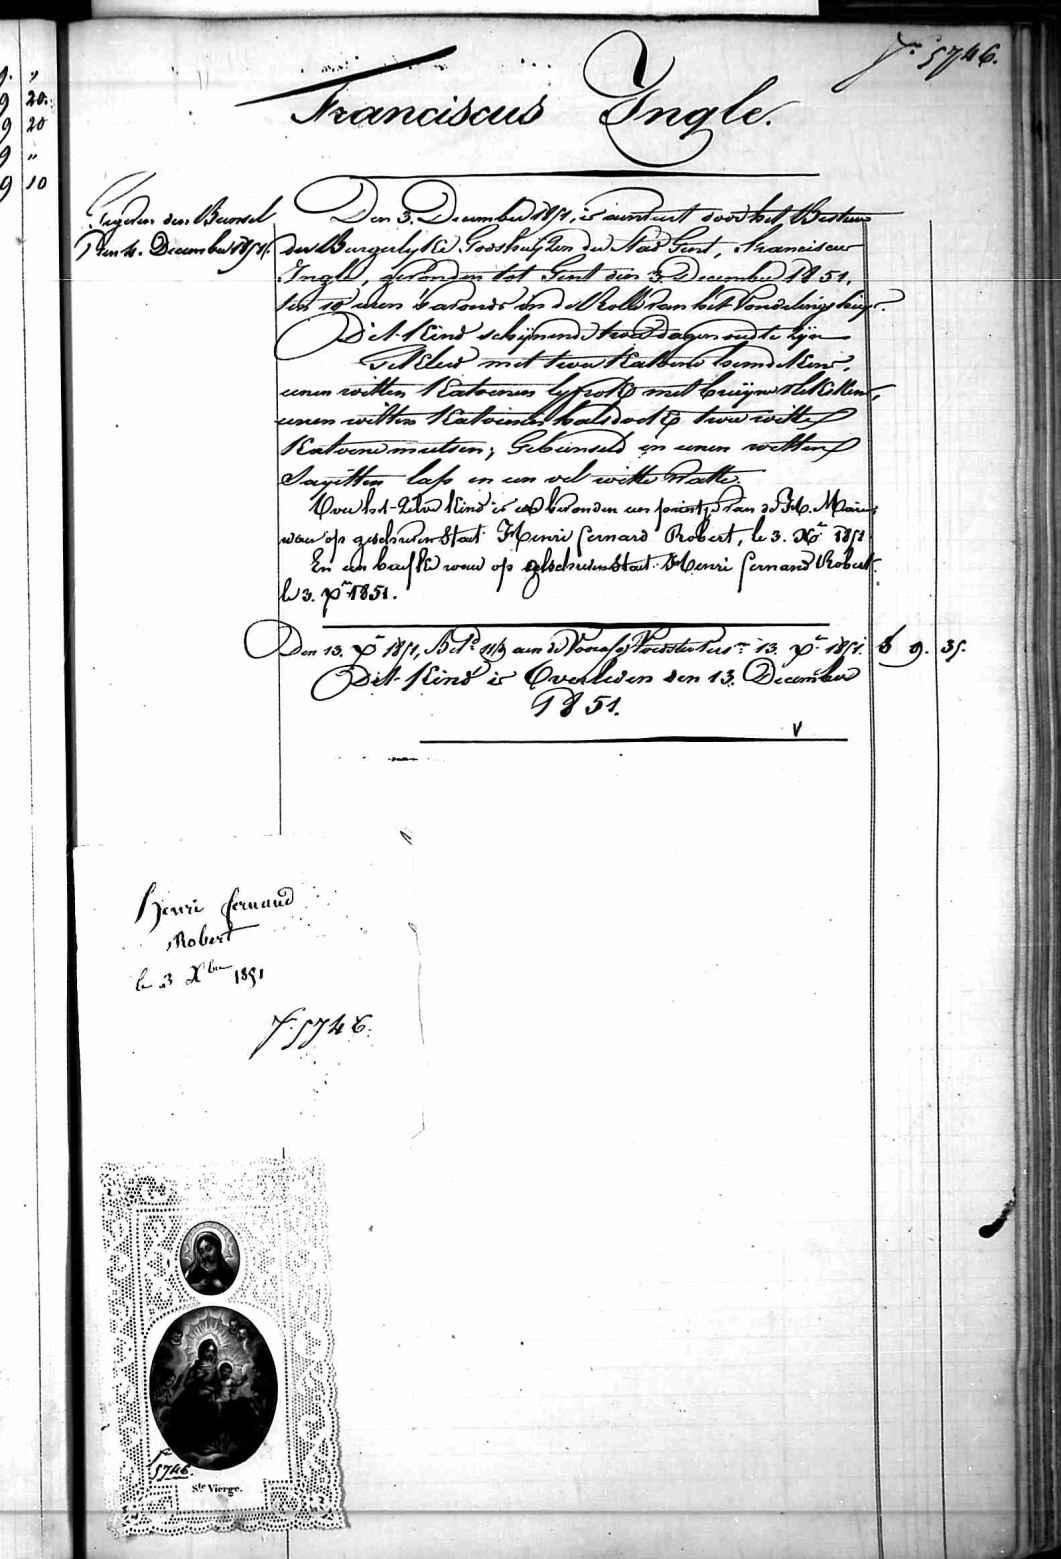 9. "
9 20.
9 20
9 "
9 10
Fo. 5746.
Franciscus Ingle.
den
Den 4. December 1851.
Den 3. December 1851, is aenveert door het Bestuer
der Burgerlyke Godshuyzen der Stad Gent, Franciscus
Ingle, gevonden tot Gent den 3. December 1851.
ten 10 uren 's avonds in de Rolle van het Vondelingshuys.
Dit Kind schynende twee dagen oud te zyn
Gekleed met twee Katoene hemdekens,
eenen witten Katoenen lyfrok met bruyne
eenen witten Katoenen halsdoek, twee witte
Katoene mutsen; Gebunseld in eenen witten
Sayetten lap en een vel witte Watte.
Over het Zelve Kind is bevonden een printje van de H. Maria;
waer op geschreven Staet Henri fernard Robert, le 3. Xbr 1851
En een briefke waer op geschreven Staet: Henri fernand Robert
le 3. Xbr 1851.
Den 13. Xbr 1851, aen de 13. Xbr 1851. 6 9. 35.
Dit Kind is Overleden den 13. December
1851.
V
Henri fernand
Robert
le 3 Xbre 1851
Fo. 5746.
Fo
5746.
Ste Vierge.